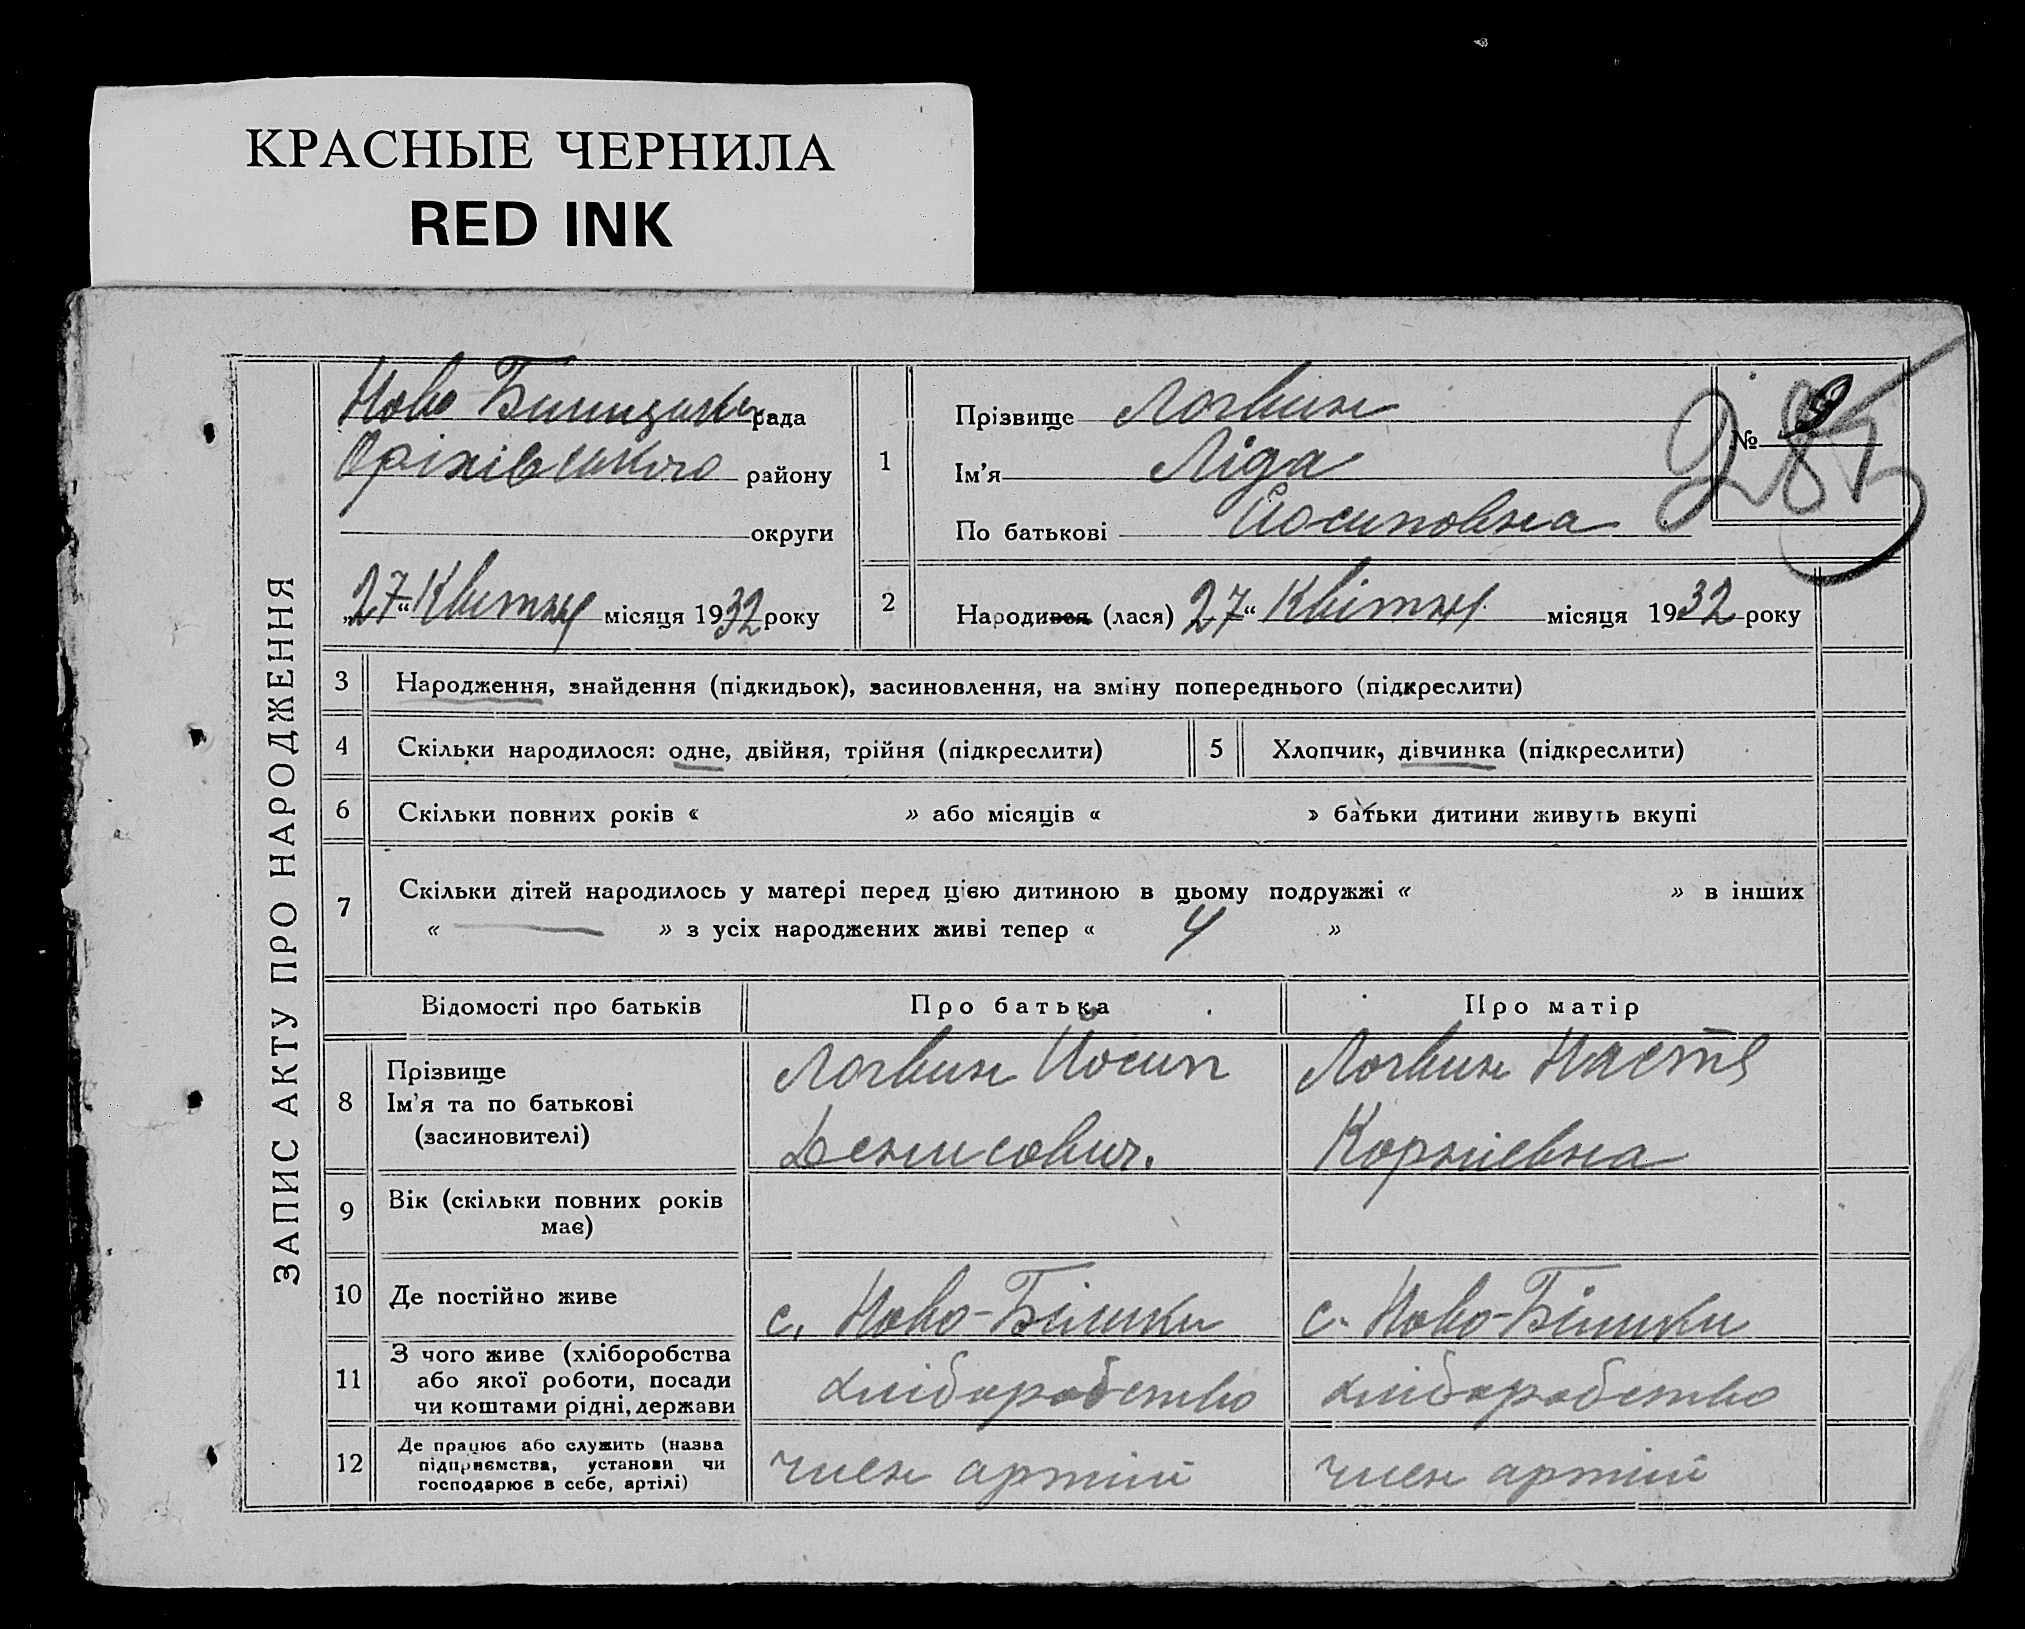 КРАСНЫЕ ЧЕРНИЛА
RED INK
ЗАПИС АКТУ ПРО НАРОДЖЕННЯ
Ново рада
Оріхівського району
округи
„27“ Квітня місяця 1932 року
1
Прізвище Логвин
Ім’я Ліда
По батькові Йосиповна
№ 9
285
2
Народився (лася) 27“ Квітня місяця 1932 року
3 Народження, знайдення (підкидьок), засиновлення, на зміну попереднього (підкреслити)
4 Скільки народилося: одне, двійня, трійня (підкреслити)
5 Хлопчик, дівчинка (підкреслити)
6 Скільки повних років « » або місяців « » батьки дитини живуть вкупі
7 Скільки дітей народилось у матері перед цією дитиною в цьому подружжі « » в інших
« — » з усіх народжених живі тепер « 4 »
Відомості про батьків Про батька Про матір
8
Прізвище
Ім’я та по батькові
(засиновителі)
Логвин Йосип
Денисович.
Логвин Настя
Корніевна
9
Вік (скільки повних років
має)
10 Де постійно живе с. Ново-Білики с. Ново-Білики
11
З чого живе (хліборобства
або якої роботи, посади
чи коштами рідні, держави
хліборобство хліборобство
12
Де працює або служить (назва
підприємства, установи чи
господарює в себе, артілі)
член артілі член артілі